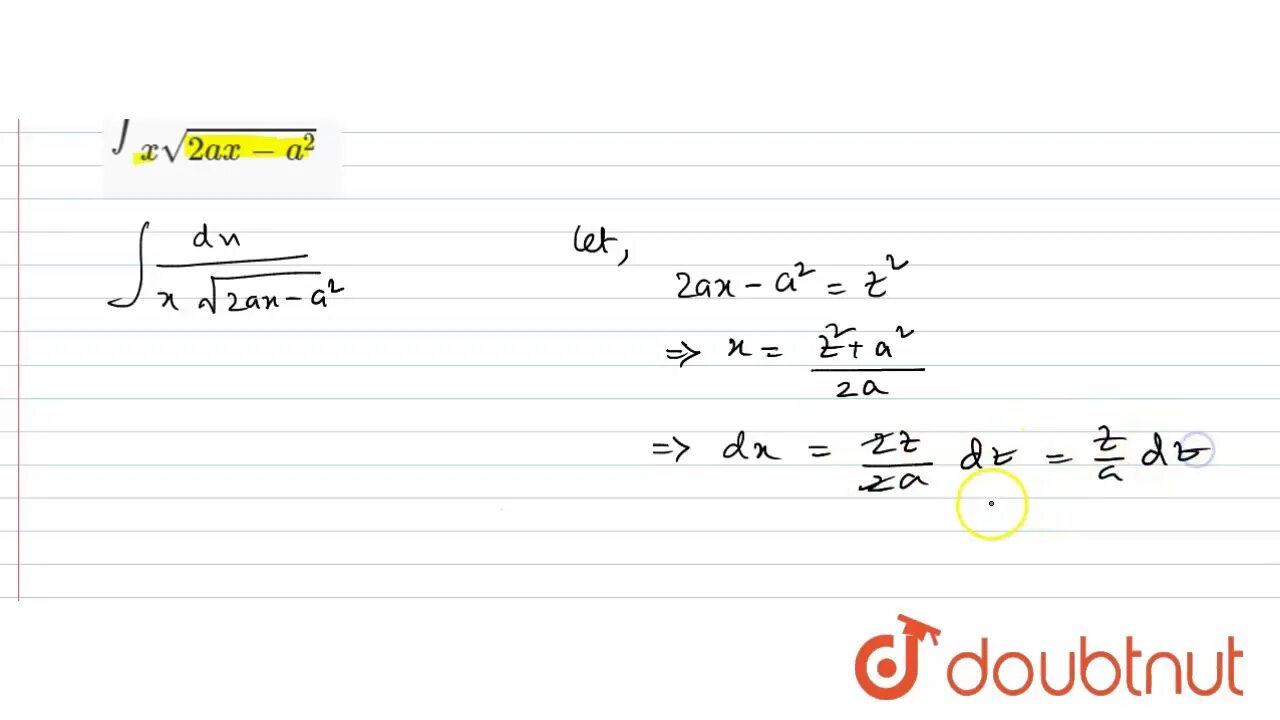 ∫ x√2ax − a²
∫ dx / x √2ax − a²
let,
2ax − a² = z²
⇒ x = z² + a² / 2a
⇒ dx = 2z / 2a dz = z / a dz
doubtnut